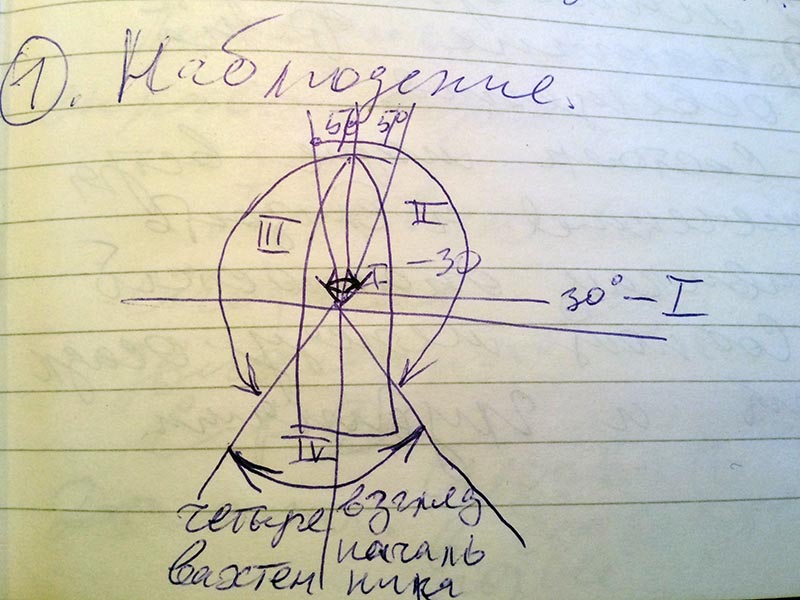 1. Наблюдение.
5° 5°
III II
I -30
30° - I
IV
четыре взгляд
вахтен началь
ника